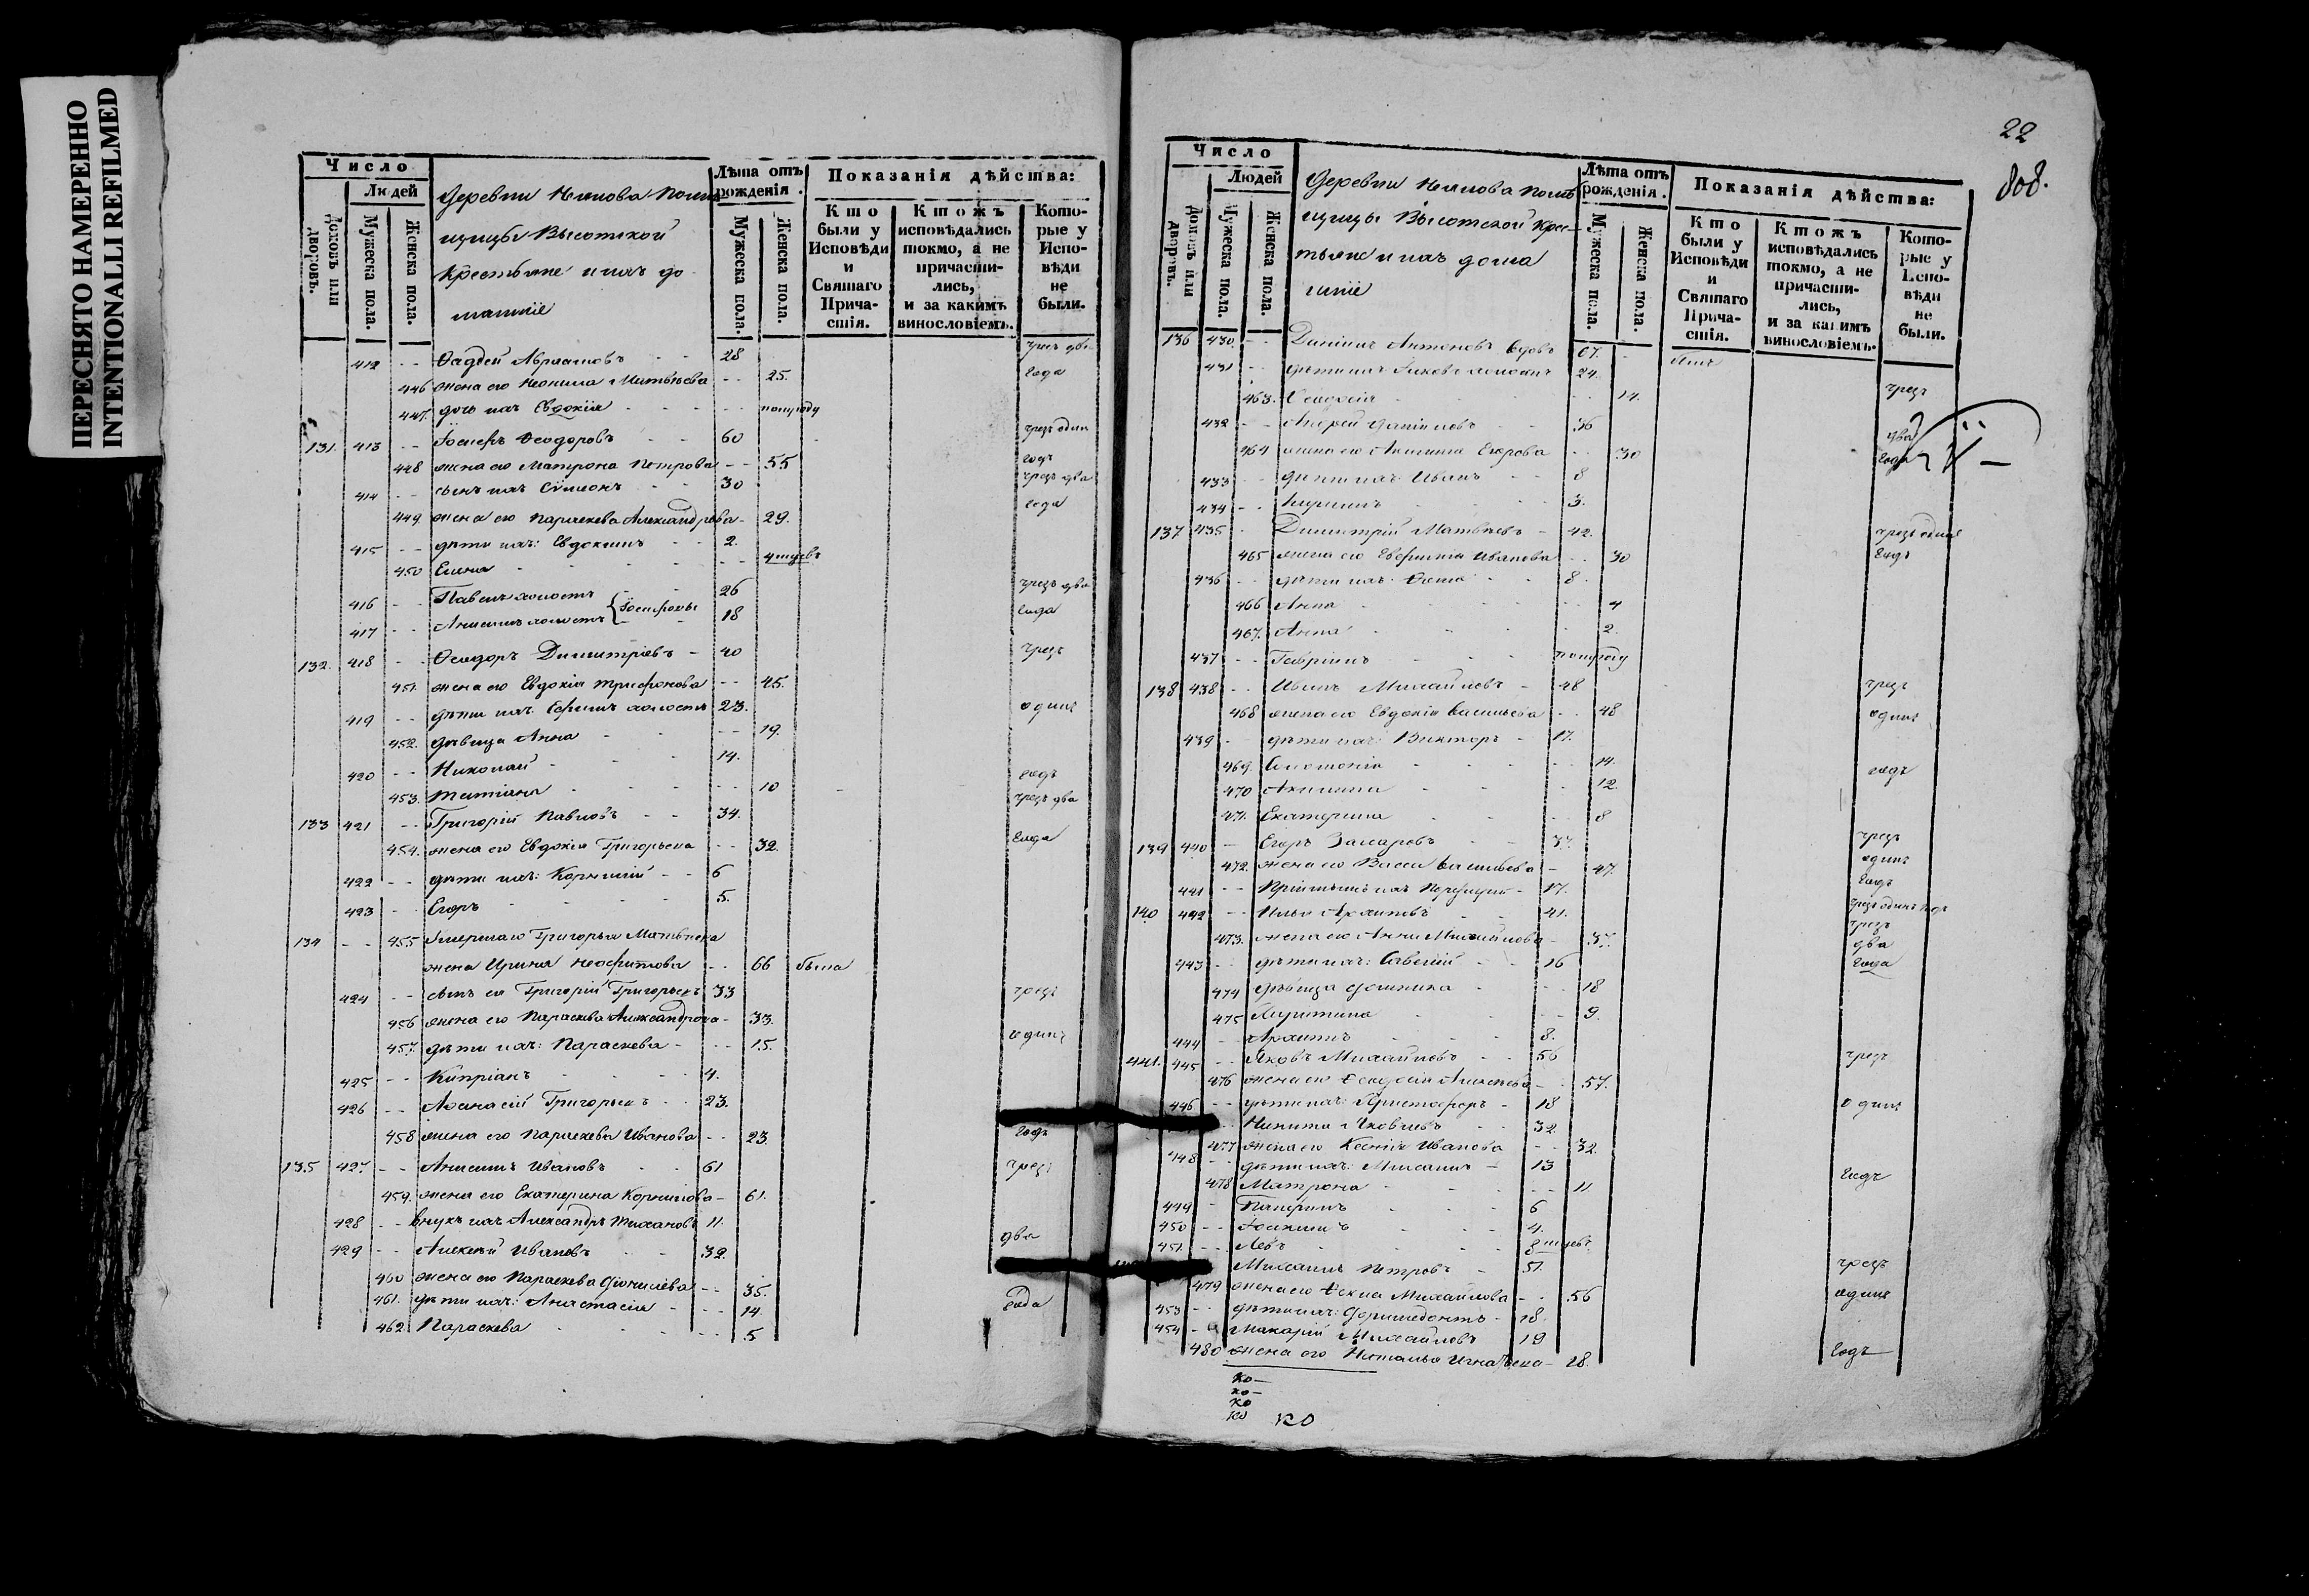 ПЕРЕСНЯТО НАМЕРЕННО
INTENTIONALLI REFILMED
Число
Людей
Домовъ или дворовъ.
Мужеска пола.
Женска пола.
Деревни помѣ
щицы Высотской
Крестьяне и ихъ до
машніе
Лѣта отъ рожденія.
Мужеска пола.
Женска пола.
Показанія дѣйства:
Кто были у Исповѣди и Святаго Причастія.
Ктожъ исповѣдались токмо, а не причастились, и за какимъ винословіемъ.
Которые у Исповѣди не были.
412 - - Фадей Авраамовъ - - 28 чрезъ два
446 жена его Неонила Матвѣева - - 25. года
447. дочь ихъ Евдокія - - полугоду
131. 413 - - Іосифъ Феодоровъ - - 60 чрезъ одинъ
448 жена его Матрона Петрова - - 55 годъ
414 - - сынъ ихъ Сѵмеонъ - - 30 чрезъ два
449. жена его Параскева Александрова - 29. года
415 - - дѣти ихъ: Евдокимъ - - 2.
450 Елена - - 4 мцовъ
416 - - Павелъ холостъ 26 чрезъ два
417 - - Анисимъ холостъ { Іосифовы 18 года
132. 418 - - Феодоръ Димитріевъ - 40 чрезъ
451. жена его Евдокія Трифонова - - 45.
419 - - дѣти ихъ: Ефимъ холостъ 23. одинъ
452. дѣвица Анна - - 19.
420 - - Николай - 14.
453. Татіана - - 10 годъ
133 421 - - Григорій Павловъ - - 34. чрезъ два
454. жена его Евдокія Григорьева - - 32. года
422 - - дѣти ихъ: Корнилій - - 6
423 - - Егоръ - 5.
134 - - 455 Умершаго Григорья Матвѣева
жена Ирина Неофитова - - 66 была
424 - - сынъ ея Григорій Григорьевъ 33 чрезъ
456 жена его Параскева Александрова - 33.
457. дѣти ихъ: Параскева - - 15. одинъ
425 - - Кипріанъ - 4.
426 - - Афанасій Григорьевъ - - 23.
458 жена его Параскева Иванова - - 23. годъ
135 427. - - Анисимъ Ивановъ - - 61 чрезъ
459. жена его Екатерина Корнилова - 61.
428 - - внукъ ихъ Александръ 11.
429 - - Алексѣй Ивановъ - - 32. два
460 жена его Параскева - - 35.
461. дѣти ихъ: Анастасія - - 14. года
462 Параскева - - 5
22
808.
Число
Людей
Домовъ или дворовъ.
Мужеска пола.
Женска пола.
Деревни помѣ
щицы Высотской Крес
тьяне и ихъ дома
шніе
Лѣта отъ рожденія.
Мужеска пола.
Женска пола.
Показанія дѣйства:
Кто были у Исповѣди и Святаго Причастія.
Ктожъ исповѣдались токмо, а не причастились, и за какимъ винословіемъ.
Которые у Исповѣди не были.
136 430 - - Даніилъ Антоновъ вдовъ 67. - былъ
431 - - дѣти ихъ Іаковъ холостъ 24.
463. Феодосія - - 14. чрезъ
432 - - Андрей Даніиловъ - 36
464 жена его Акилина Егорова - - 30 два года
433 - - дѣти ихъ: Иванъ - - 8
434 - - Кириллъ - 3.
137 435 - Димитрій Матвѣевъ - 42. чрезъ одинъ
465 жена его Евфимія Иванова - - 30 годъ
436 - - дѣти ихъ: Фома - - 8.
466 Анна - - 4
467. Анна - - 2.
437 - - Гавріилъ - полугоду
138 438 - - Иванъ Михайловъ - 48 чрезъ
468 жена его Евдокія Васильева - - 48 одинъ
439 - - дѣти ихъ: Викторъ - 17.
469. Соломонія - - 14. годъ
470 Акилина - - 12.
471. Екатерина - - 8
139 440 - Егоръ Захаровъ - 37. чрезъ
472. жена его Васса Васильева - 47. одинъ
441 - - Пріимышъ ихъ Порфирій - 17. годъ
140 442 - - Илья Архиповъ - 41. чрезъ одинъ годъ
473. жена его Анна Михайлова - 37. чрезъ два
443 - - дѣти ихъ: Савелій - - 16 года
474 дѣвица Домника - - 18
475 Харитина - - 9.
444 - Архипъ - 8.
441. 445 - - Яковъ Михайловъ - - 56 чрезъ
476 жена его Феодосія Алексѣева - - 57.
446 - - дѣти ихъ: Христофоръ - 18 одинъ
Никита Яковлевъ - 32
477 жена его Ксенія Иванова - - 32.
448 - - дѣти ихъ: Михаилъ - 13
478 Матрона - - 11 годъ
449 - - 6
450 - - Іоакимъ - 4.
451. - - Левъ - 8 мцевъ
Михаилъ Петровъ - 51. чрезъ
479 жена его Фекла Михайлова - - 56
453 - - дѣти ихъ: Доримедонтъ - 18. одинъ
454 - Макарій Михайловъ 19
480 жена его Наталья Игнатьева - 18. годъ
ко -
ко -
ко
ко ко